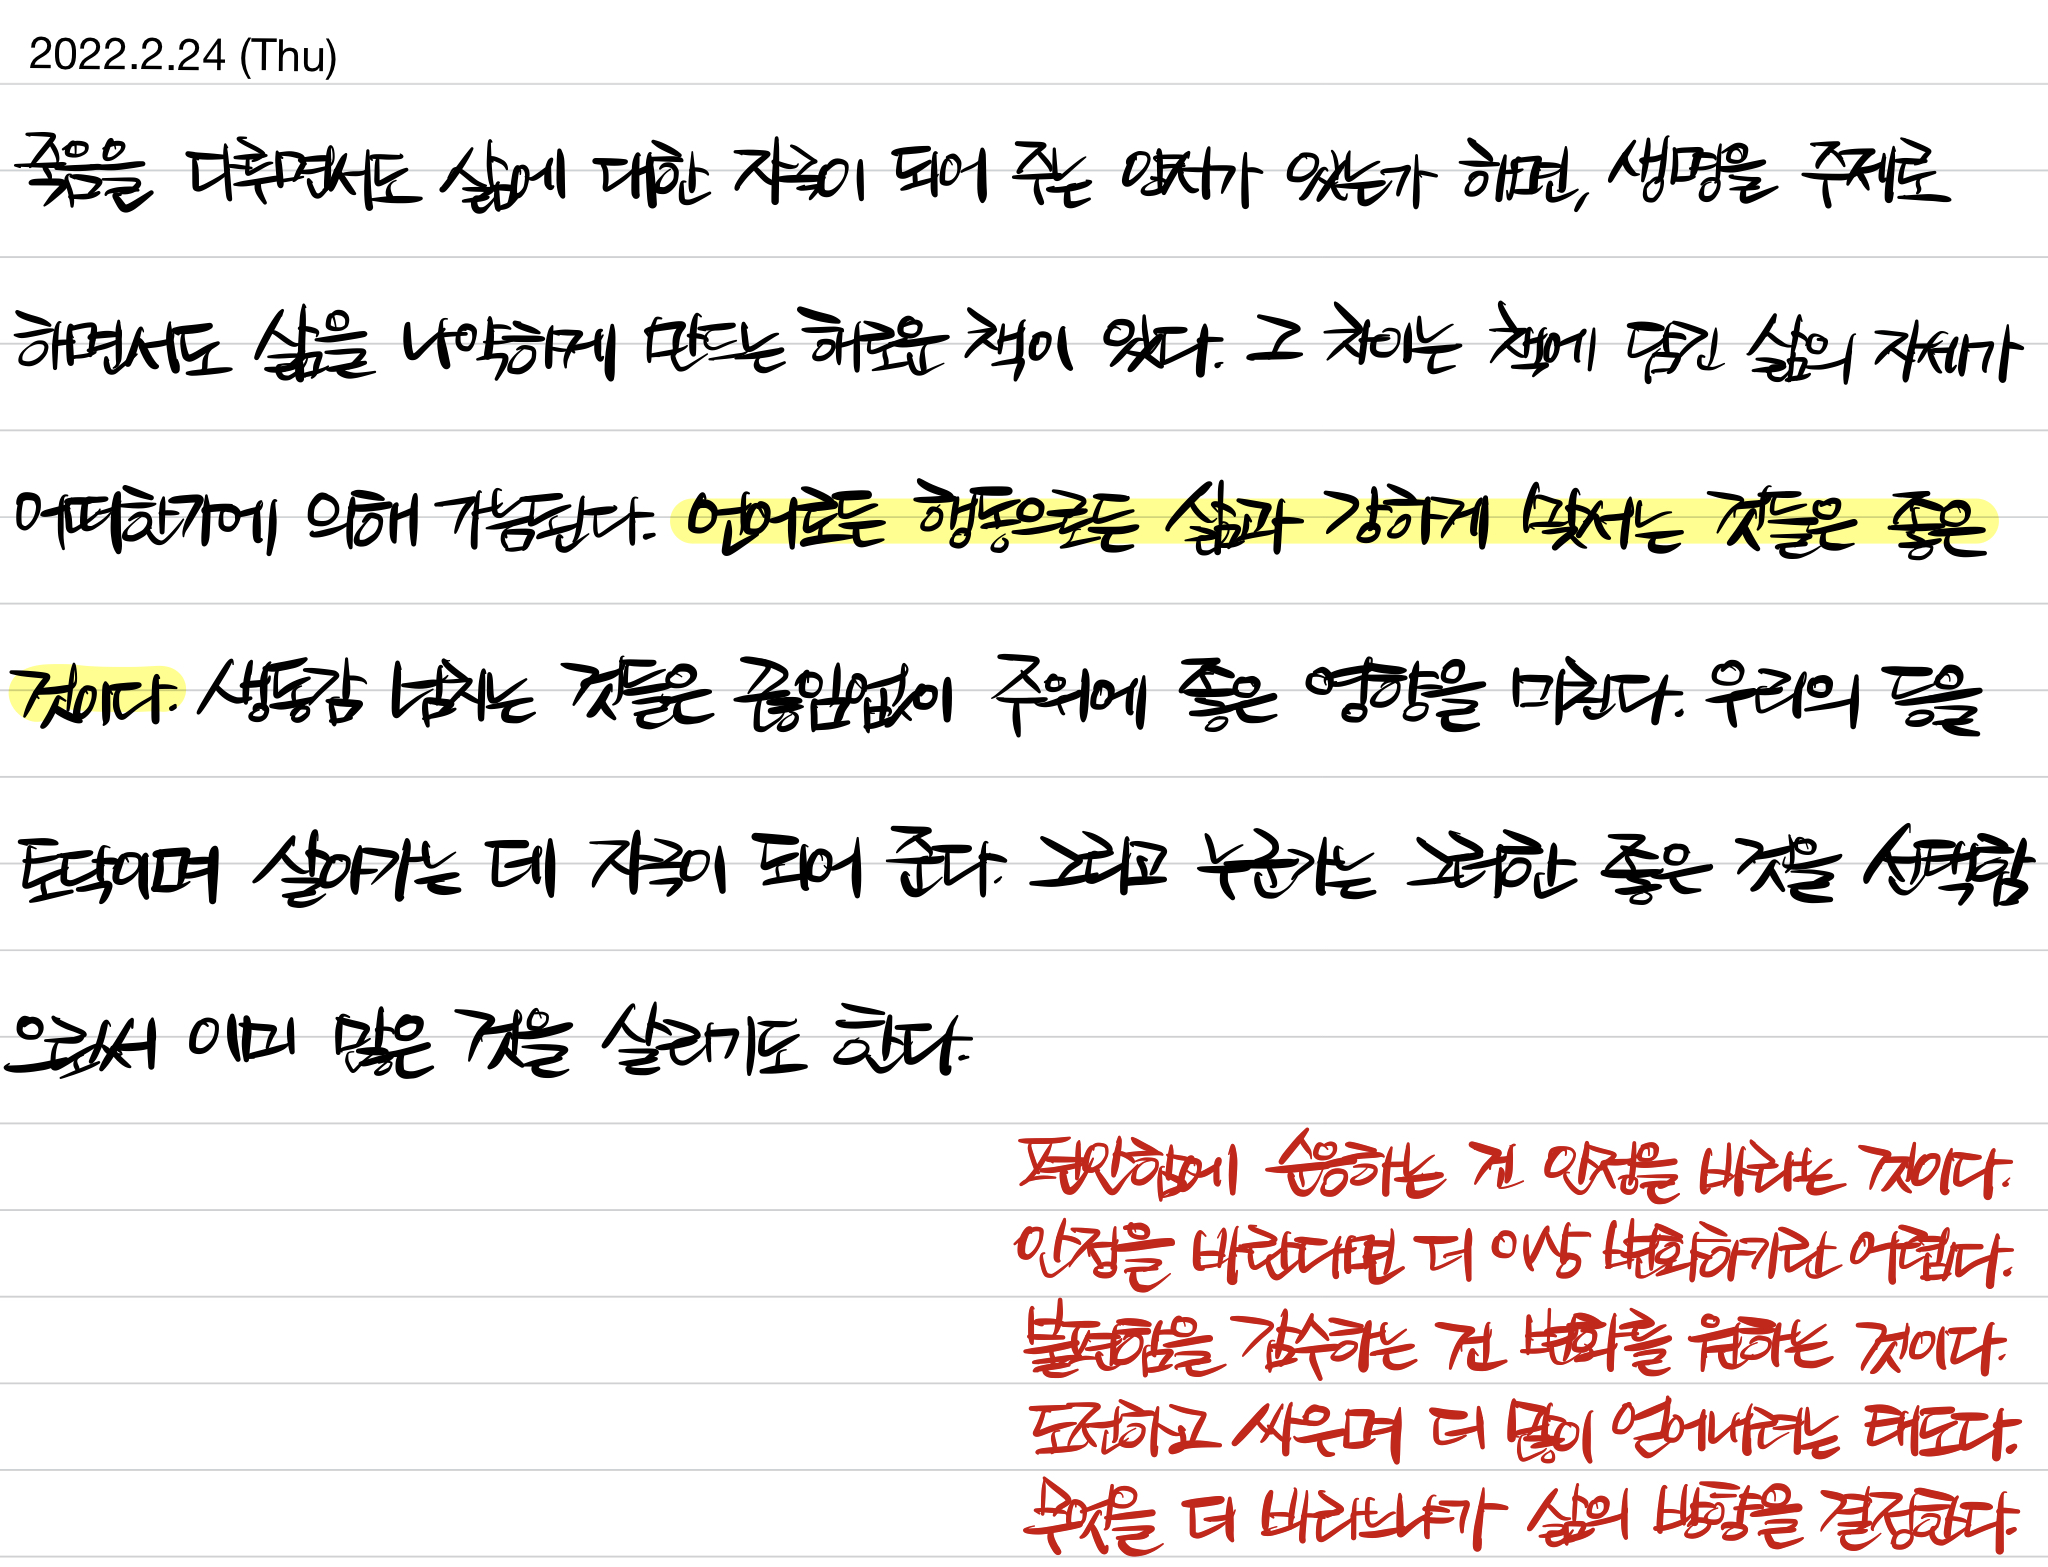 2022.2.24 (Thu)
죽음을 다루면서도 삶에 대한 자극이 되어 주는 영화가 있는가 하면, 생명을 주제로
하면서도 삶을 나약하게 만드는 해로운 책이 있다. 그 차이는 책에 담긴 삶의 자세가
어떠한가에 의해 가늠된다. 언어로든 행동으로든 삶과 강하게 맞서는 것들은 좋은
것이다. 생동감 넘치는 것들은 끊임없이 주위에 좋은 영향을 미친다. 우리의 등을
토닥이며 살아가는 데 자극이 되어 준다. 그리고 누군가는 그러한 좋은 것을 선택함
으로써 이미 많은 것을 살리기도 한다.
편안함에 순응하는 건 안정을 바라는 것이다.
안정을 바란다면 더 이상 변화하기란 어렵다.
불편함을 감수하는 건 변화를 원하는 것이다.
도전하고 싸우며 더 많이 얻어내려는 태도다.
무엇을 더 바라느냐가 삶의 방향을 결정한다.